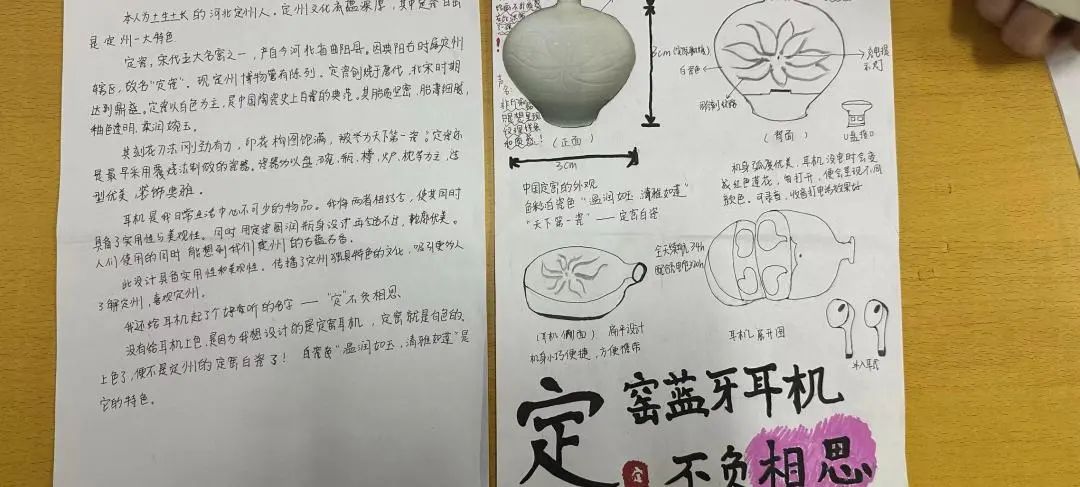 本人为土生土长的河北定州人。定州文化底蕴深厚，其中定瓷白瓷
是定州一大特色
定窑，宋代五大名窑之一，产自今河北省曲阳县。因曲阳古时属定州
辖区，故名"定瓷"。现定州博物馆有陈列。定窑创烧于唐代，北宋时期
达到鼎盛。定窑以白色为主，是中国陶瓷史上白瓷的典范。其胎质坚密，胎薄细腻，
釉色透明，柔润媲玉。
其刻花刀法刚劲有力，印花构图饱满，被誉为天下第一瓷。定窑还
是最早采用覆烧法制做的瓷器。瓷器为以盘、碗、瓶、樽、炉、枕等为主，造
型优美，装饰典雅。
耳机是我日常生活中必不可少的物品。我将两者相结合，使其同时
具备了实用性与美观性。同时用定窑圆润瓶身设计再合适不过，轮廓优美。
人们使用的同时能想到我们定州的古蕴古香。
此设计具备实用性和美观性。传播了定州独具特色的文化，吸引更多人
了解定州，喜欢定州。
我还给耳机起了个好听的名字——"定"不负相思
没有给耳机上色，是因为我想设计的是定窑耳机，定窑就是白色的。
上色了，便不是定州的定窑白瓷了！白瓷色"温润如玉，清雅如莲"是
它的特色。
3cm
(正面)
3cm
中国定窑的外观
色彩白瓷色"温润如玉，清雅如莲"
"天下第一瓷"——定窑白瓷
白瓷色
充电提
示灯
U盘接口
(背面)
机身弧度优美，耳机没电时会变
成红色莲花，每打开，便会呈现不同
颜色。可录音，收音打电话效果好
(耳机侧面) 扁平设计
机身小巧便捷，方便携带
耳机展开图
入耳式
定
窑蓝牙耳机
定
不负相思